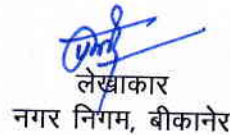 लेखाकार
नगर निगम, बीकानेर